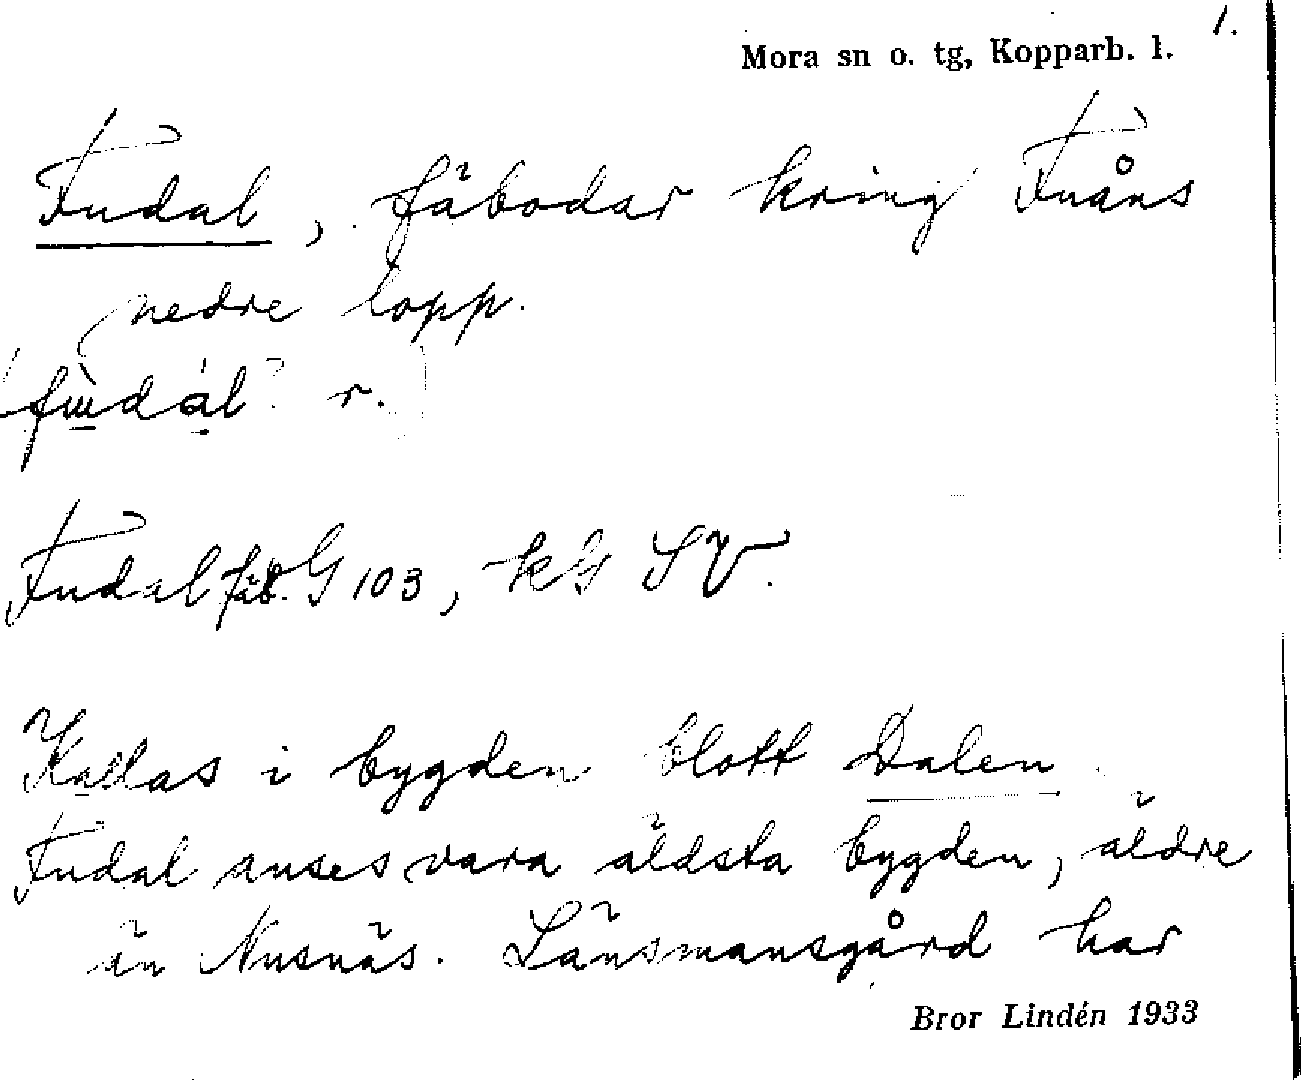 1.
Mora sn o. tg, Kopparb. l.
Fudal, fäbodar kring Fuåns
nedre lopp.
r.
Fudal fäb. G 103, kG SV.
Kallas i bygden blott Dalen.
Fudal anses vara äldsta bygden, äldre
än Nusnäs. Länsmansgård har
Bror Lindén 1933